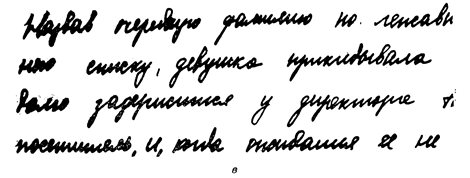 Назвав очередную фамилию по
ному списку, девушка прикидывала
долго задержится у директора
посетитель, и, когда ошибался не
в